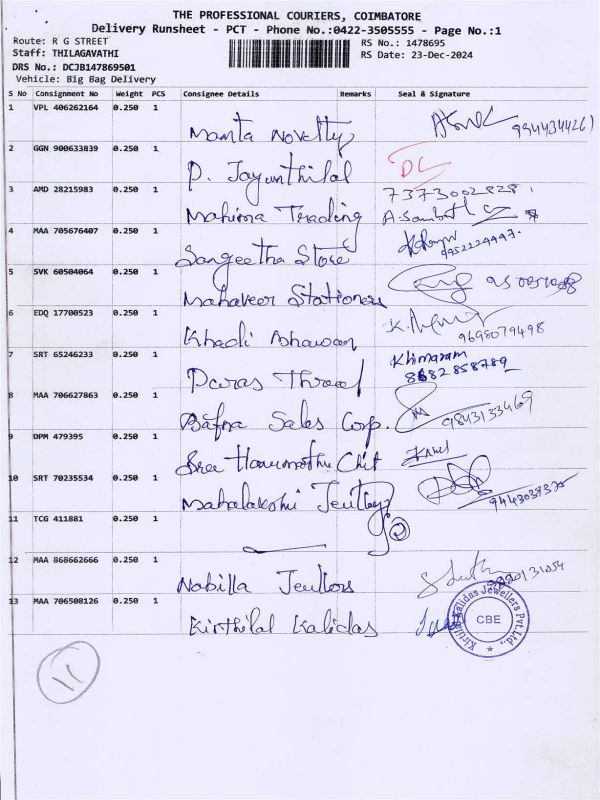 THE PROFESSIONAL COURIERS, COIMBATORE
Delivery Runsheet - PCT - Phone No.:0422-3505555 - Page No.:1
Route: R G STREET
RS No.: 1478695
Staff: THILAGAVATHI
RS Date: 23-Dec-2024
DRS No.: DCJB147869501
Vehicle: Big Bag Delivery
S No Consignment No Weight PCS Consignee Details Remarks Seal & Signature
1 VPL 406262164 0.250 1
Mamta Novelty 9944344261
2 GGN 900633839 0.250 1
P. Jayanthilal DL
3 AMD 28215983 0.250 1 7373002828
Mahima Trading
4 MAA 705676407 0.250 1
Sangeetha Store 9952224447
5 SVK 60504064 0.250 1
Mahaveer Stationers
6 EDQ 17700523 0.250 1
Khadi Bhawan 9698079498
7 SRT 65246233 0.250 1 Khimaram
Paras Thread 8682858789
8 MAA 706627863 0.250 1
Bafna Sales Corp. 9843133469
9 DPM 479395 0.250 1
Sree Chit
10 SRT 70235534 0.250 1
Mahalakshi
11 TCG 411881 0.250 1
12 MAA 868662666 0.250 1
Nabilla
13 MAA 706508126 0.250 1
Kirthilal Kalidas
Kirthilal Kalidas Jewellers Pvt.Ltd.,
CBE